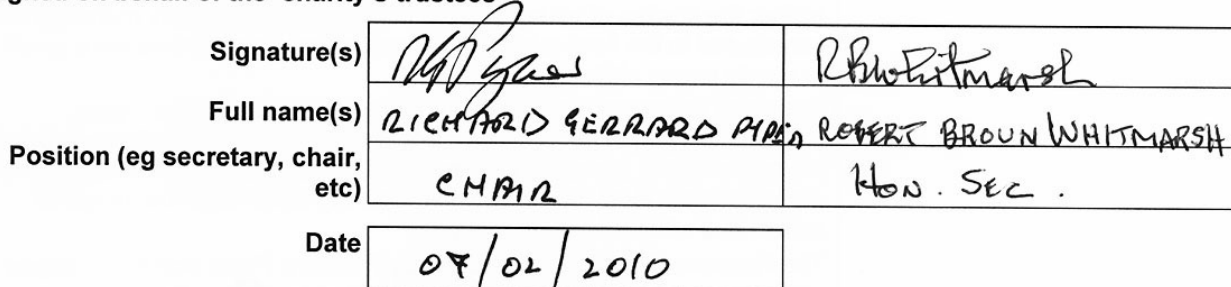 Signature(s) R B Whitmarsh
Full name(s) RICHARD GERRARD PIPER ROBERT BROUN WHITMARSH
Position (eg secretary, chair, etc) CHAIR HON. SEC.
Date 07/02/2010